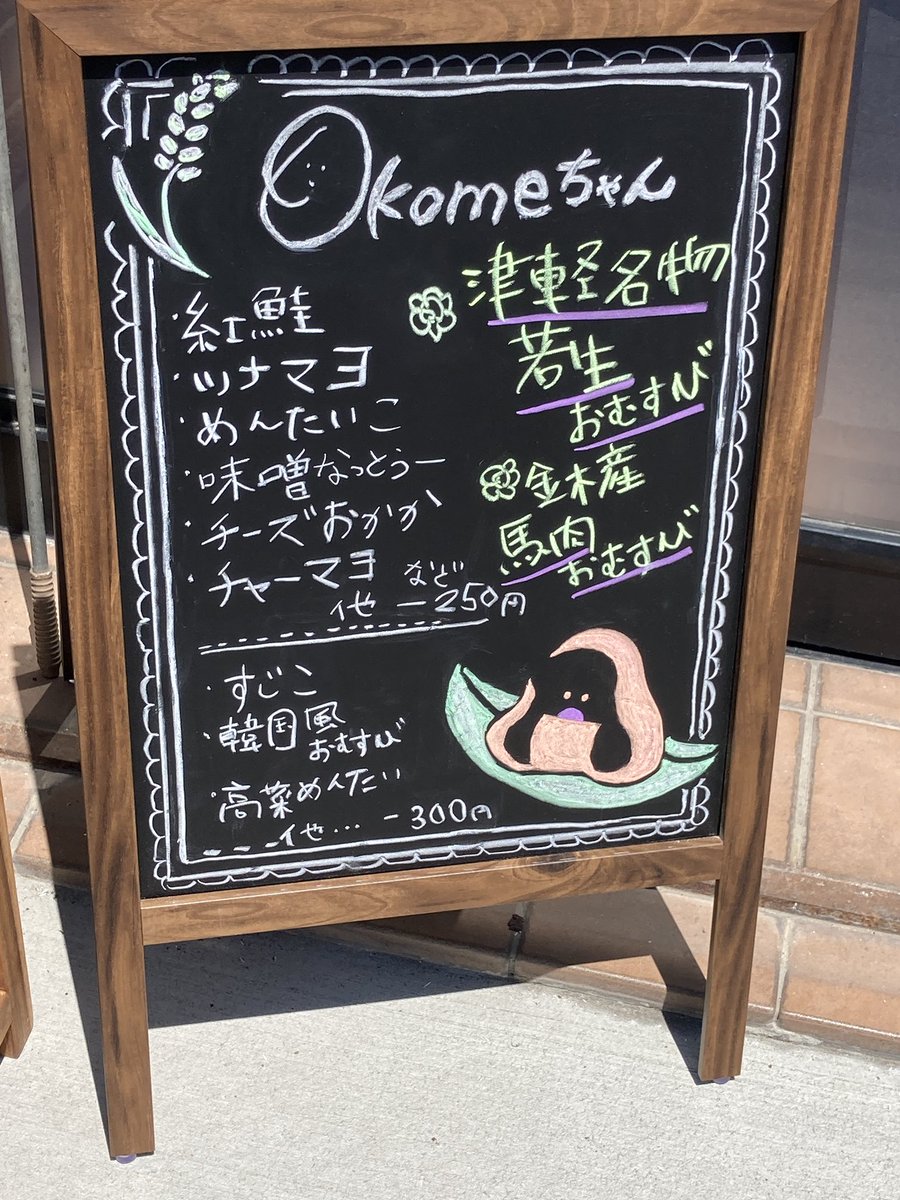 Okomeちゃん
・紅鮭
・ツナマヨ
・めんたいこ
・味噌なっとぅー
・チーズおかか
・チャーマヨ など
他 -250円
・すじこ
・韓国風
おむすび
・高菜めんたい
他… -300円
津軽名物
若生
おむすび
金木産
馬肉
おむすび